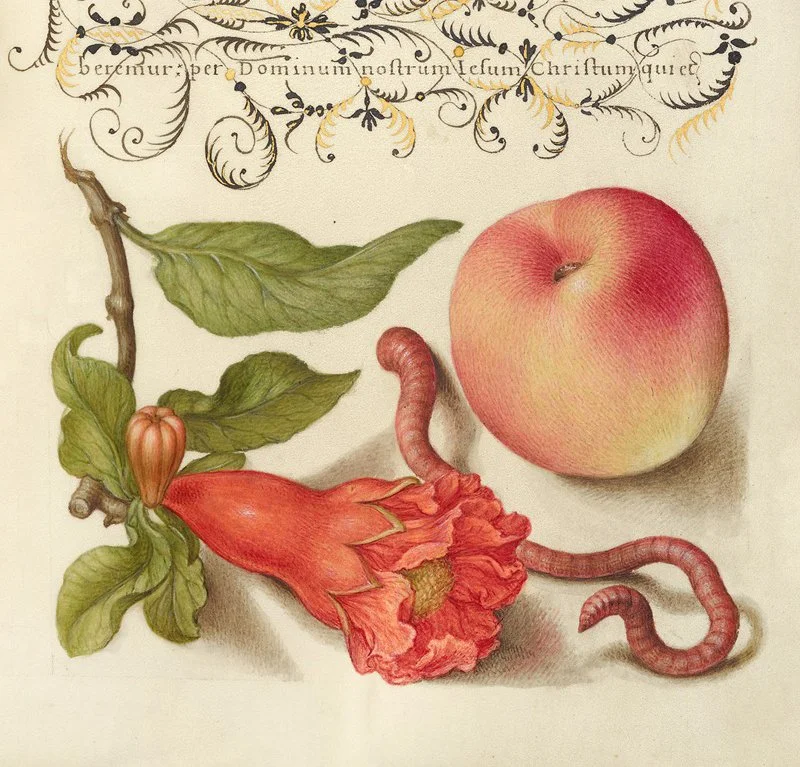 beremur: per Dominum nostrum Iesum Christum, qui et